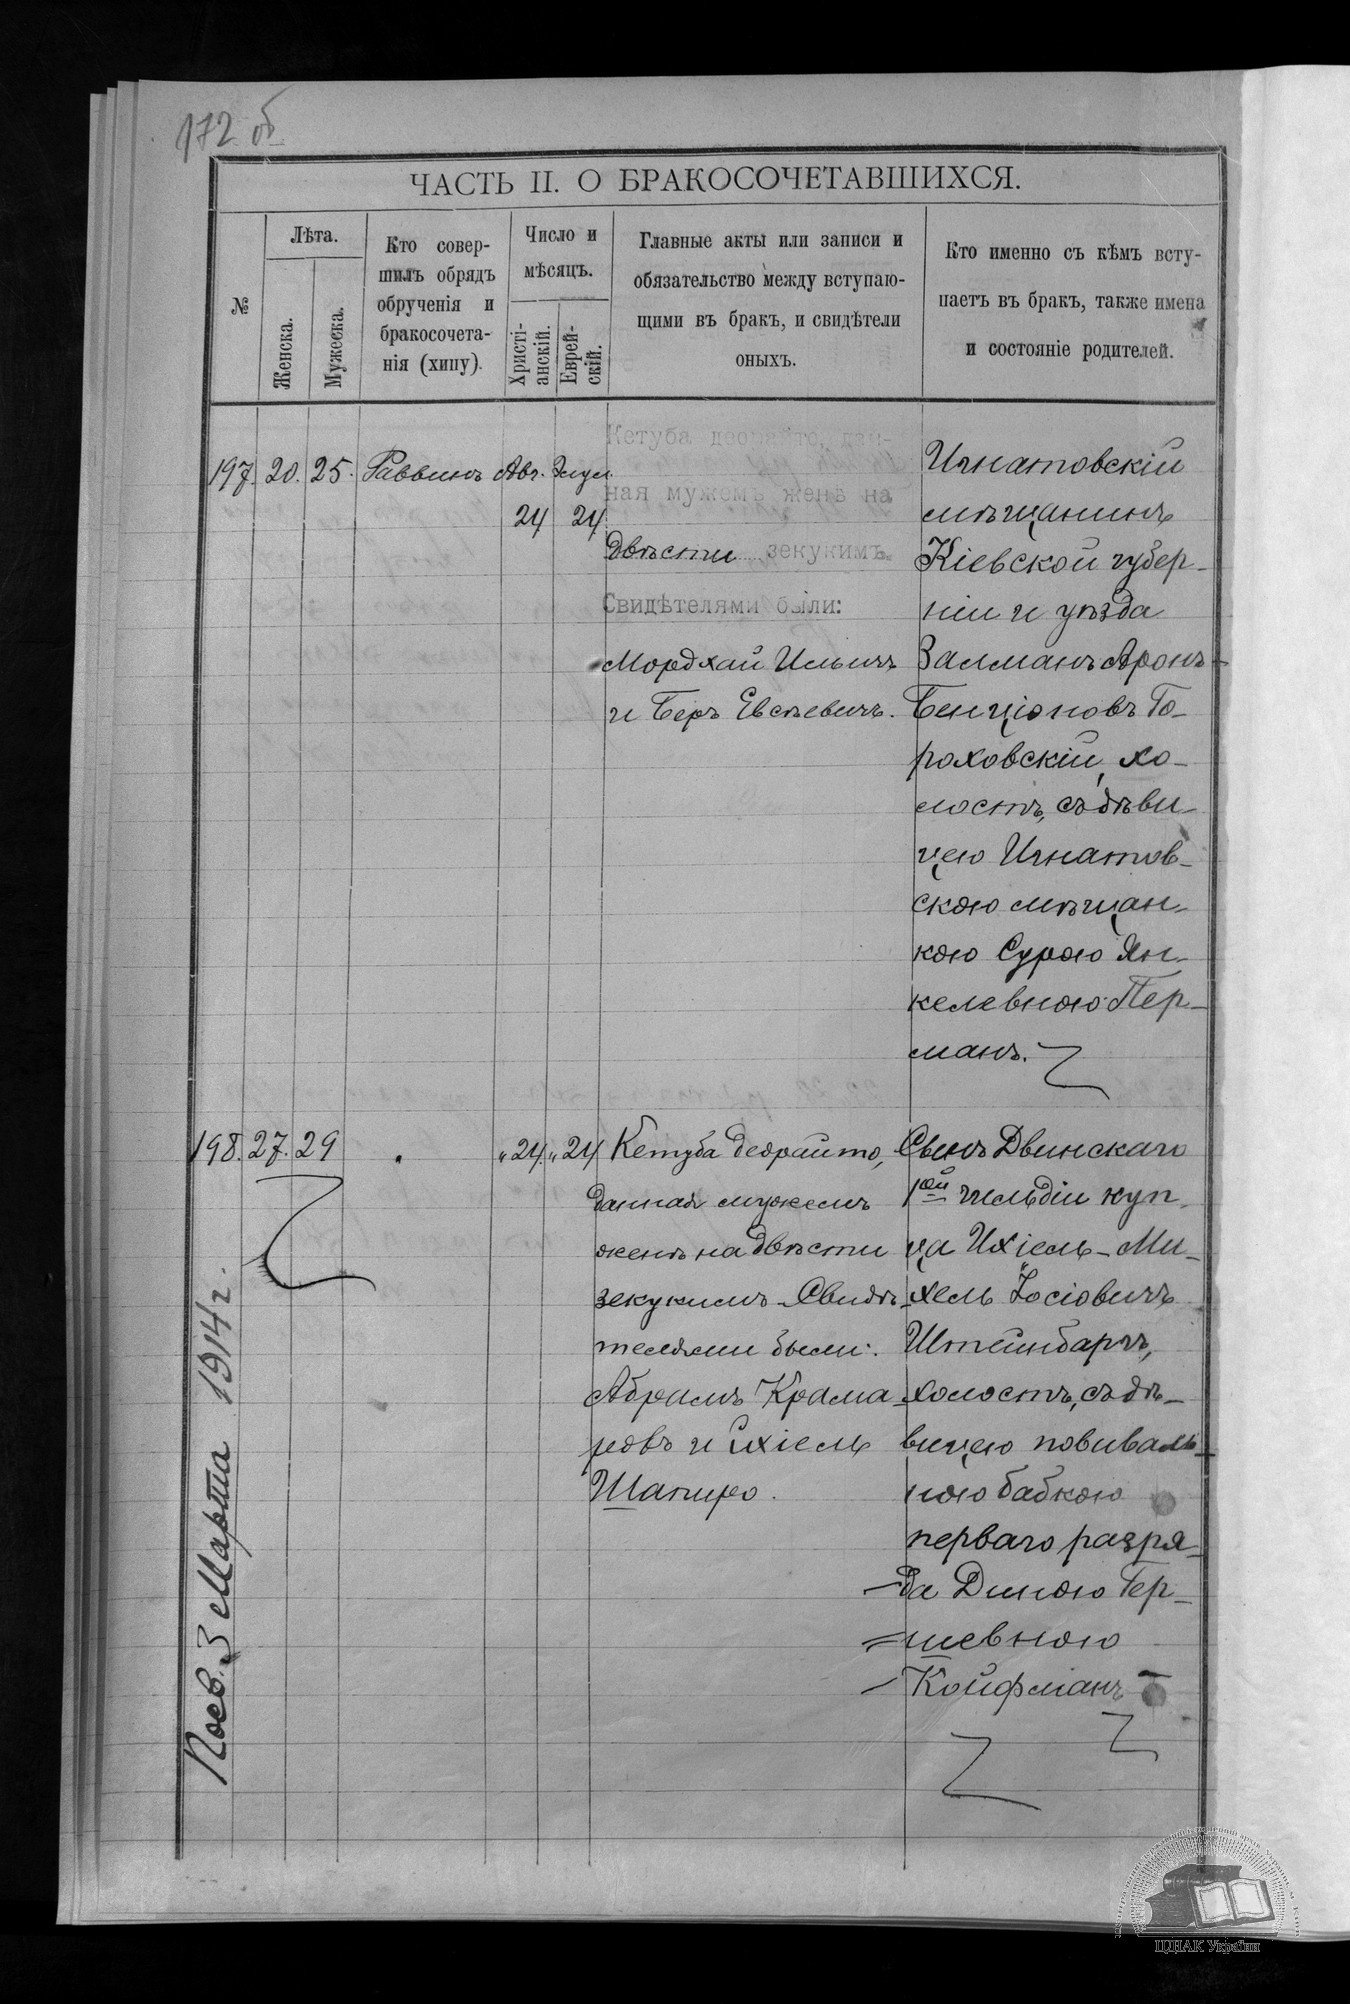 172 об
ЧАСТЬ II. О БРАКОСОЧЕТАВШИХСЯ.
№
Лѣта.
Женска.
Мужеска.
Кто совер-
шилъ обрядъ
обрученія и
бракосочета-
нія (хипу).
Число и
мѣсяцъ.
Христі-
анскій.
Еврей-
скій.
Главные акты или записи и
обязательство между вступаю-
щими въ бракъ, и свидѣтели
оныхъ.
Кто именно съ кѣмъ всту-
паетъ въ бракъ, также имена
и состояніе родителей.
197. 20. 25. Раввинъ Авг. Элул.
24 24
Кетуба деорайто, дан-
ная мужемъ женѣ на
двѣсти зекукимъ.
Свидѣтелями были:
Мордхай Ильичъ
и Беръ Евсѣевичъ.
Игнатовскій
мѣщанинъ
Кіевской губер-
ніи и уѣзда
Залманъ Аронъ-
Бенціоновъ Го-
роховскій, хо-
лостъ, съ дѣви-
цею Игнатов-
скою мѣщан-
кою Сурою Ян-
келевною Пер-
манъ.
198. 27. 29 " 24. " 24
Кетуба деорайто,
данная мужемъ
женѣ на двѣсти
зекукимъ. Свидѣ-
телями были:
Абрамъ Крама-
ровъ и Ихіель
Шапиро.
Сынъ Двинскаго
1ой гильдіи куп-
ца Ихіель-Ми-
хель Іосіовичъ
Штейнбаргъ,
холостъ, съ дѣ-
вицею повиваль-
ною бабкою
перваго разря-
да Диною Гер-
шевною
Койфманъ
Посв. 3 Марта 1914 г.
ЦДІАК України